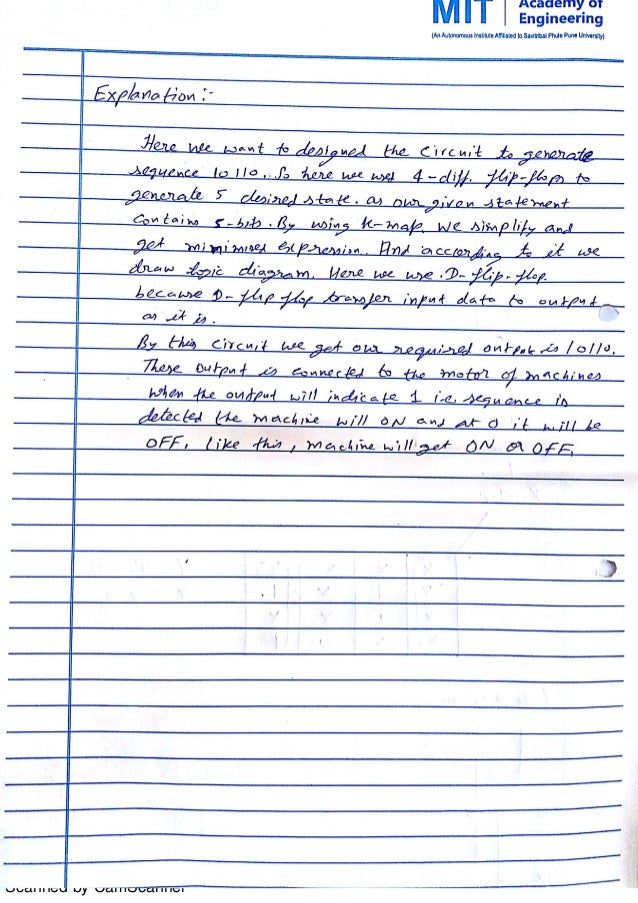 MIT Academy of
Engineering
(An Autonomous Institute Affiliated to Savitribai Phule Pune University)
Explanation :-
Here we want to designed the circuit to generate
sequence 10110. So here we used 4-diff. flip-flops to
generate 5 desired state. as our given statement
contains 5-bits. By using K-map we simplify and
get minimised expression. And according to it we
draw logic diagram. Here we use D-flip-flop.
because D-flip flop transfer input data to output
as it is.
By this circuit we get our required output is 10110.
These output is connected to the motor of machines
when the output will indicate 1 i.e. sequence is
detected the machine will ON and at 0 it will be
OFF. Like this, machine will get ON or OFF.
Scanned by CamScanner